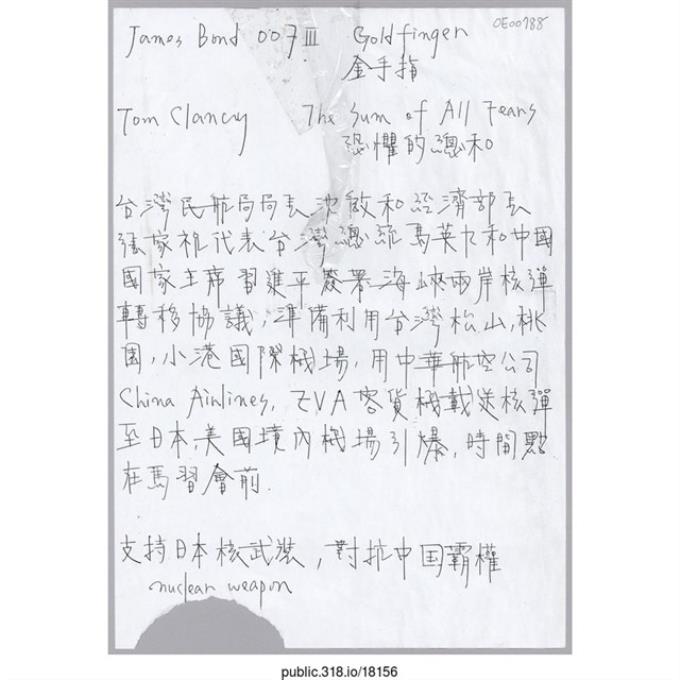 OE00788
James Bond 007 III Goldfinger
金手指
Tom Clancy The Sum of All Fears
恐懼的總和
台灣民航局局長沈啟和經濟部長
張家祝代表台灣總統馬英九和中國
國家主席習進平簽署海峽兩岸核彈
轉移協議，準備利用台灣松山，桃
園，小港國際機場，用中華航空公司
China Airlines, EVA 客貨機載送核彈
至日本，美國境內機場引爆，時間點
在馬習會前.
支持日本核武裝，對抗中国霸權
nuclear weapon
public.318.io/18156